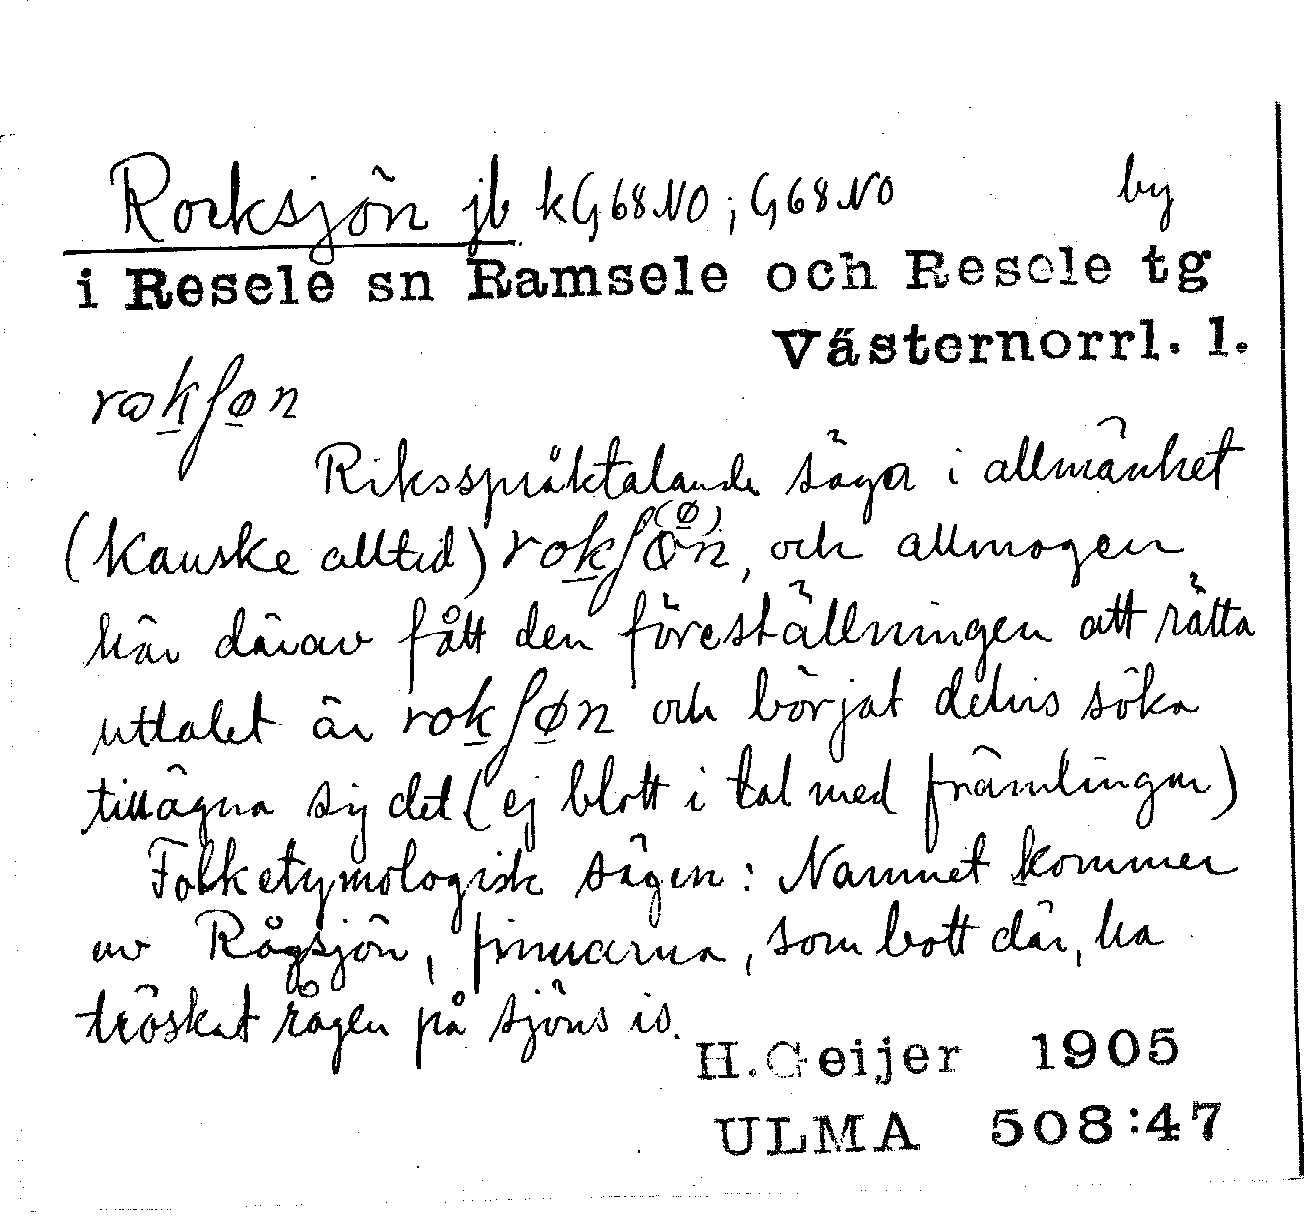 Rocksjön jb kG68NO; G68NO by
i Resele sn Ramsele och Resele tg
Västernorrl. l.
Riksspråktalande säga i allmänhet
(kanske alltid) och allmogen
här därav fått den föreställningen att rätta
uttalet är och börjat delvis söka
tillägna sig det (ej blott i tal med främlingar)
Folketymologisk sägen: Namnet kommer
av Rågsjön, finnarna, som bott där, ha
tröskat rågen på sjöns is.
H. Geijer 1905
ULMA 508:47